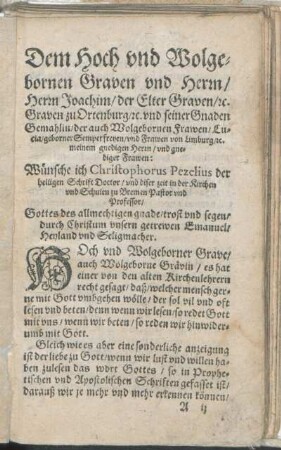 Dem Hoch vnd Wolge-
bornen Graven vnd Herrn/
Herrn Joachim/ der Elter Graven/ ꝛc.
Graven zu Ortenburg/ ꝛc. vnd seiner Gnaden
Gemahlin/ der auch Wolgebornen Frawen/ Lu-
cia/ geborner Semperfreyen/ vnd Frawen von Limburg/ ꝛc.
meinem gnedigen Herrn/ vnd gne-
diger Frawen:
Wünsche ich Christophorus Pezelius der
heiligen Schrift Doctor/ vnd diser zeit in der Kirchen
vnd Schulen zu Bremen Pastor vnd
Professor/
Gottes des allmechtigen gnade/ trost vnd segen/
durch Christum vnsern getrewen Emanuel/
Heyland vnd Seligmacher.
HOch vnd Wolgeborner Grave/
auch Wolgeborne Grävin/ es hat
einer von den alten Kirchenlehrern
recht gesagt/ daß/ welcher mensch ger-
ne mit Gott vmbgehen wölle/ der sol vil vnd oft
lesen vnd beten/ denn wenn wir lesen/ so redet Gott
mit vns/ wenn wir beten/ so reden wir hinwider-
umb mit Gott.
Gleich wie es aber eine sonderliche anzeigung
ist der liebe zu Gott/ wenn wir lust vnd willen ha-
ben zulesen das wort Gottes/ so in Prophe-
tischen vnd Apostolischen Schriften gefasset ist/
darauß wir je mehr vnd mehr erkennen können/
A ij